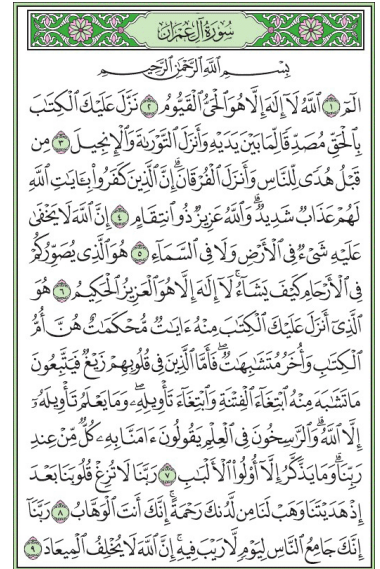 سُورَةُ آلِ عِمۡرَان
بِسۡمِ ٱللَّهِ ٱلرَّحۡمَٰنِ ٱلرَّحِيمِ
الٓمٓ ١ ٱللَّهُ لَآ إِلَٰهَ إِلَّا هُوَ ٱلۡحَيُّ ٱلۡقَيُّومُ ٢ نَزَّلَ عَلَيۡكَ ٱلۡكِتَٰبَ
بِٱلۡحَقِّ مُصَدِّقٗا لِّمَا بَيۡنَ يَدَيۡهِ وَأَنزَلَ ٱلتَّوۡرَىٰةَ وَٱلۡإِنجِيلَ ٣ مِن
قَبۡلُ هُدٗى لِّلنَّاسِ وَأَنزَلَ ٱلۡفُرۡقَانَۗ إِنَّ ٱلَّذِينَ كَفَرُواْ بِـَٔايَٰتِ ٱللَّهِ
لَهُمۡ عَذَابٞ شَدِيدٞۗ وَٱللَّهُ عَزِيزٞ ذُو ٱنتِقَامٍ ٤ إِنَّ ٱللَّهَ لَا يَخۡفَىٰ
عَلَيۡهِ شَيۡءٞ فِي ٱلۡأَرۡضِ وَلَا فِي ٱلسَّمَآءِ ٥ هُوَ ٱلَّذِي يُصَوِّرُكُمۡ
فِي ٱلۡأَرۡحَامِ كَيۡفَ يَشَآءُۚ لَآ إِلَٰهَ إِلَّا هُوَ ٱلۡعَزِيزُ ٱلۡحَكِيمُ ٦ هُوَ
ٱلَّذِيٓ أَنزَلَ عَلَيۡكَ ٱلۡكِتَٰبَ مِنۡهُ ءَايَٰتٞ مُّحۡكَمَٰتٌ هُنَّ أُمُّ
ٱلۡكِتَٰبِ وَأُخَرُ مُتَشَٰبِهَٰتٞۖ فَأَمَّا ٱلَّذِينَ فِي قُلُوبِهِمۡ زَيۡغٞ فَيَتَّبِعُونَ
مَا تَشَٰبَهَ مِنۡهُ ٱبۡتِغَآءَ ٱلۡفِتۡنَةِ وَٱبۡتِغَآءَ تَأۡوِيلِهِۦۖ وَمَا يَعۡلَمُ تَأۡوِيلَهُۥٓ
إِلَّا ٱللَّهُۗ وَٱلرَّٰسِخُونَ فِي ٱلۡعِلۡمِ يَقُولُونَ ءَامَنَّا بِهِۦ كُلّٞ مِّنۡ عِندِ
رَبِّنَاۗ وَمَا يَذَّكَّرُ إِلَّآ أُوْلُواْ ٱلۡأَلۡبَٰبِ ٧ رَبَّنَا لَا تُزِغۡ قُلُوبَنَا بَعۡدَ
إِذۡ هَدَيۡتَنَا وَهَبۡ لَنَا مِن لَّدُنكَ رَحۡمَةًۚ إِنَّكَ أَنتَ ٱلۡوَهَّابُ ٨ رَبَّنَآ
إِنَّكَ جَامِعُ ٱلنَّاسِ لِيَوۡمٖ لَّا رَيۡبَ فِيهِۚ إِنَّ ٱللَّهَ لَا يُخۡلِفُ ٱلۡمِيعَادَ ٩